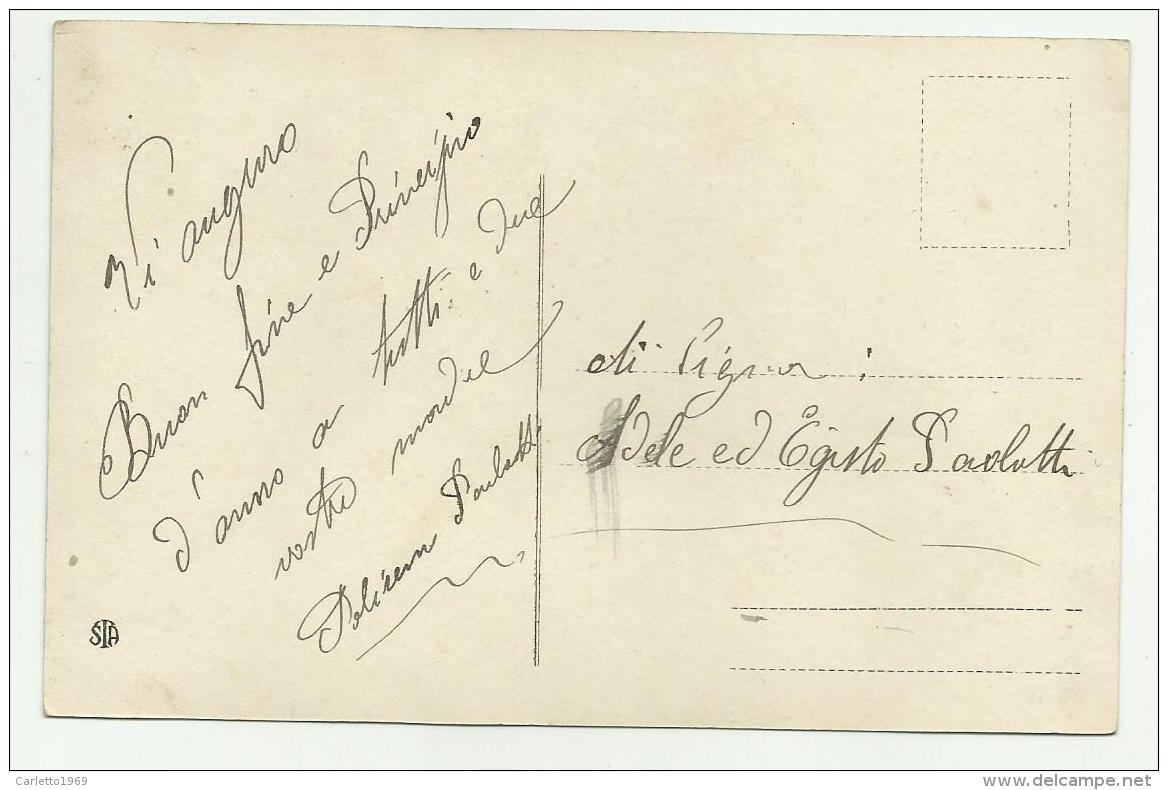 Vi auguro
Buon fine e Principio
d'anno a tutti e due
vostro
Paolotti
STA
Ai Signori
Adele ed Egisto Paolotti
Carletto1969
www.delcampe.net